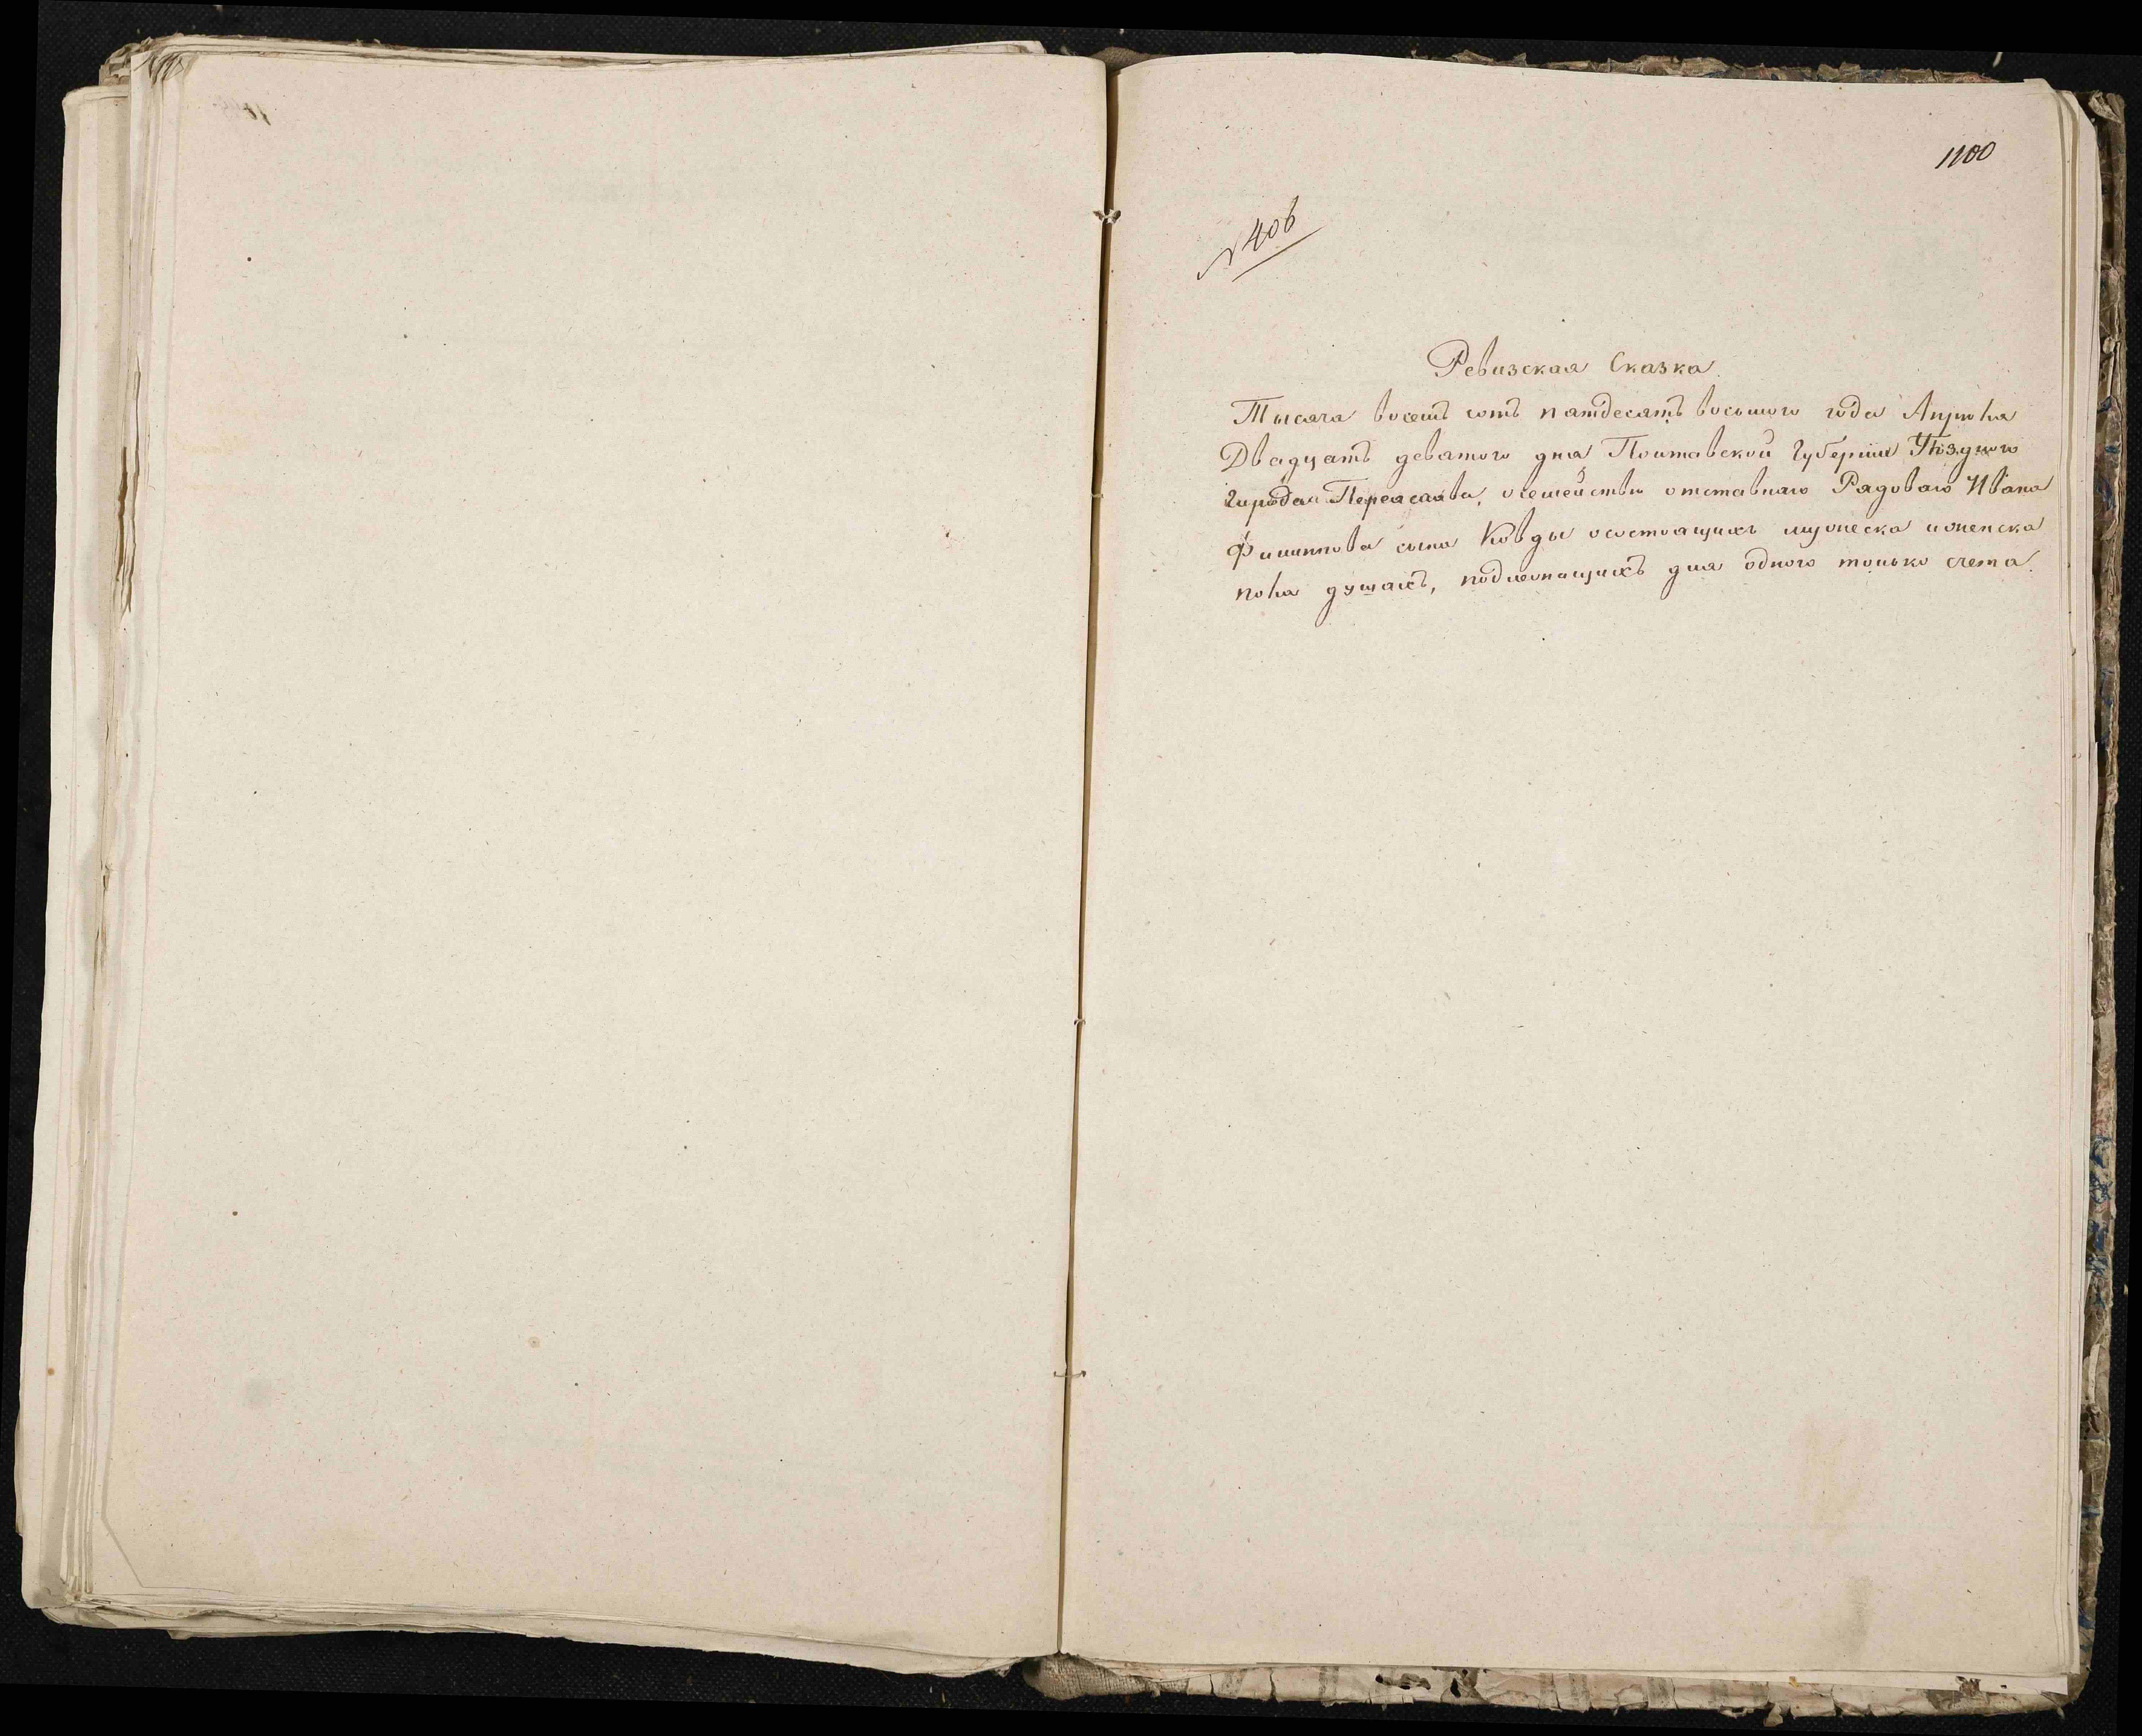 1100
№ 406
Ревизская Сказка
Тысяча восемъ сотъ пятдесятъ восьмого года Апреля
Двадцатъ девятого дня Полтавской Губернии Уѣзднаго
Города Переяслава, о семействѣ отставнаго Рядоваго Ивана
Филиппова сына Ковды о состоящихъ мужеска и женска
пола душахъ, подлежащихъ для одного только счета.